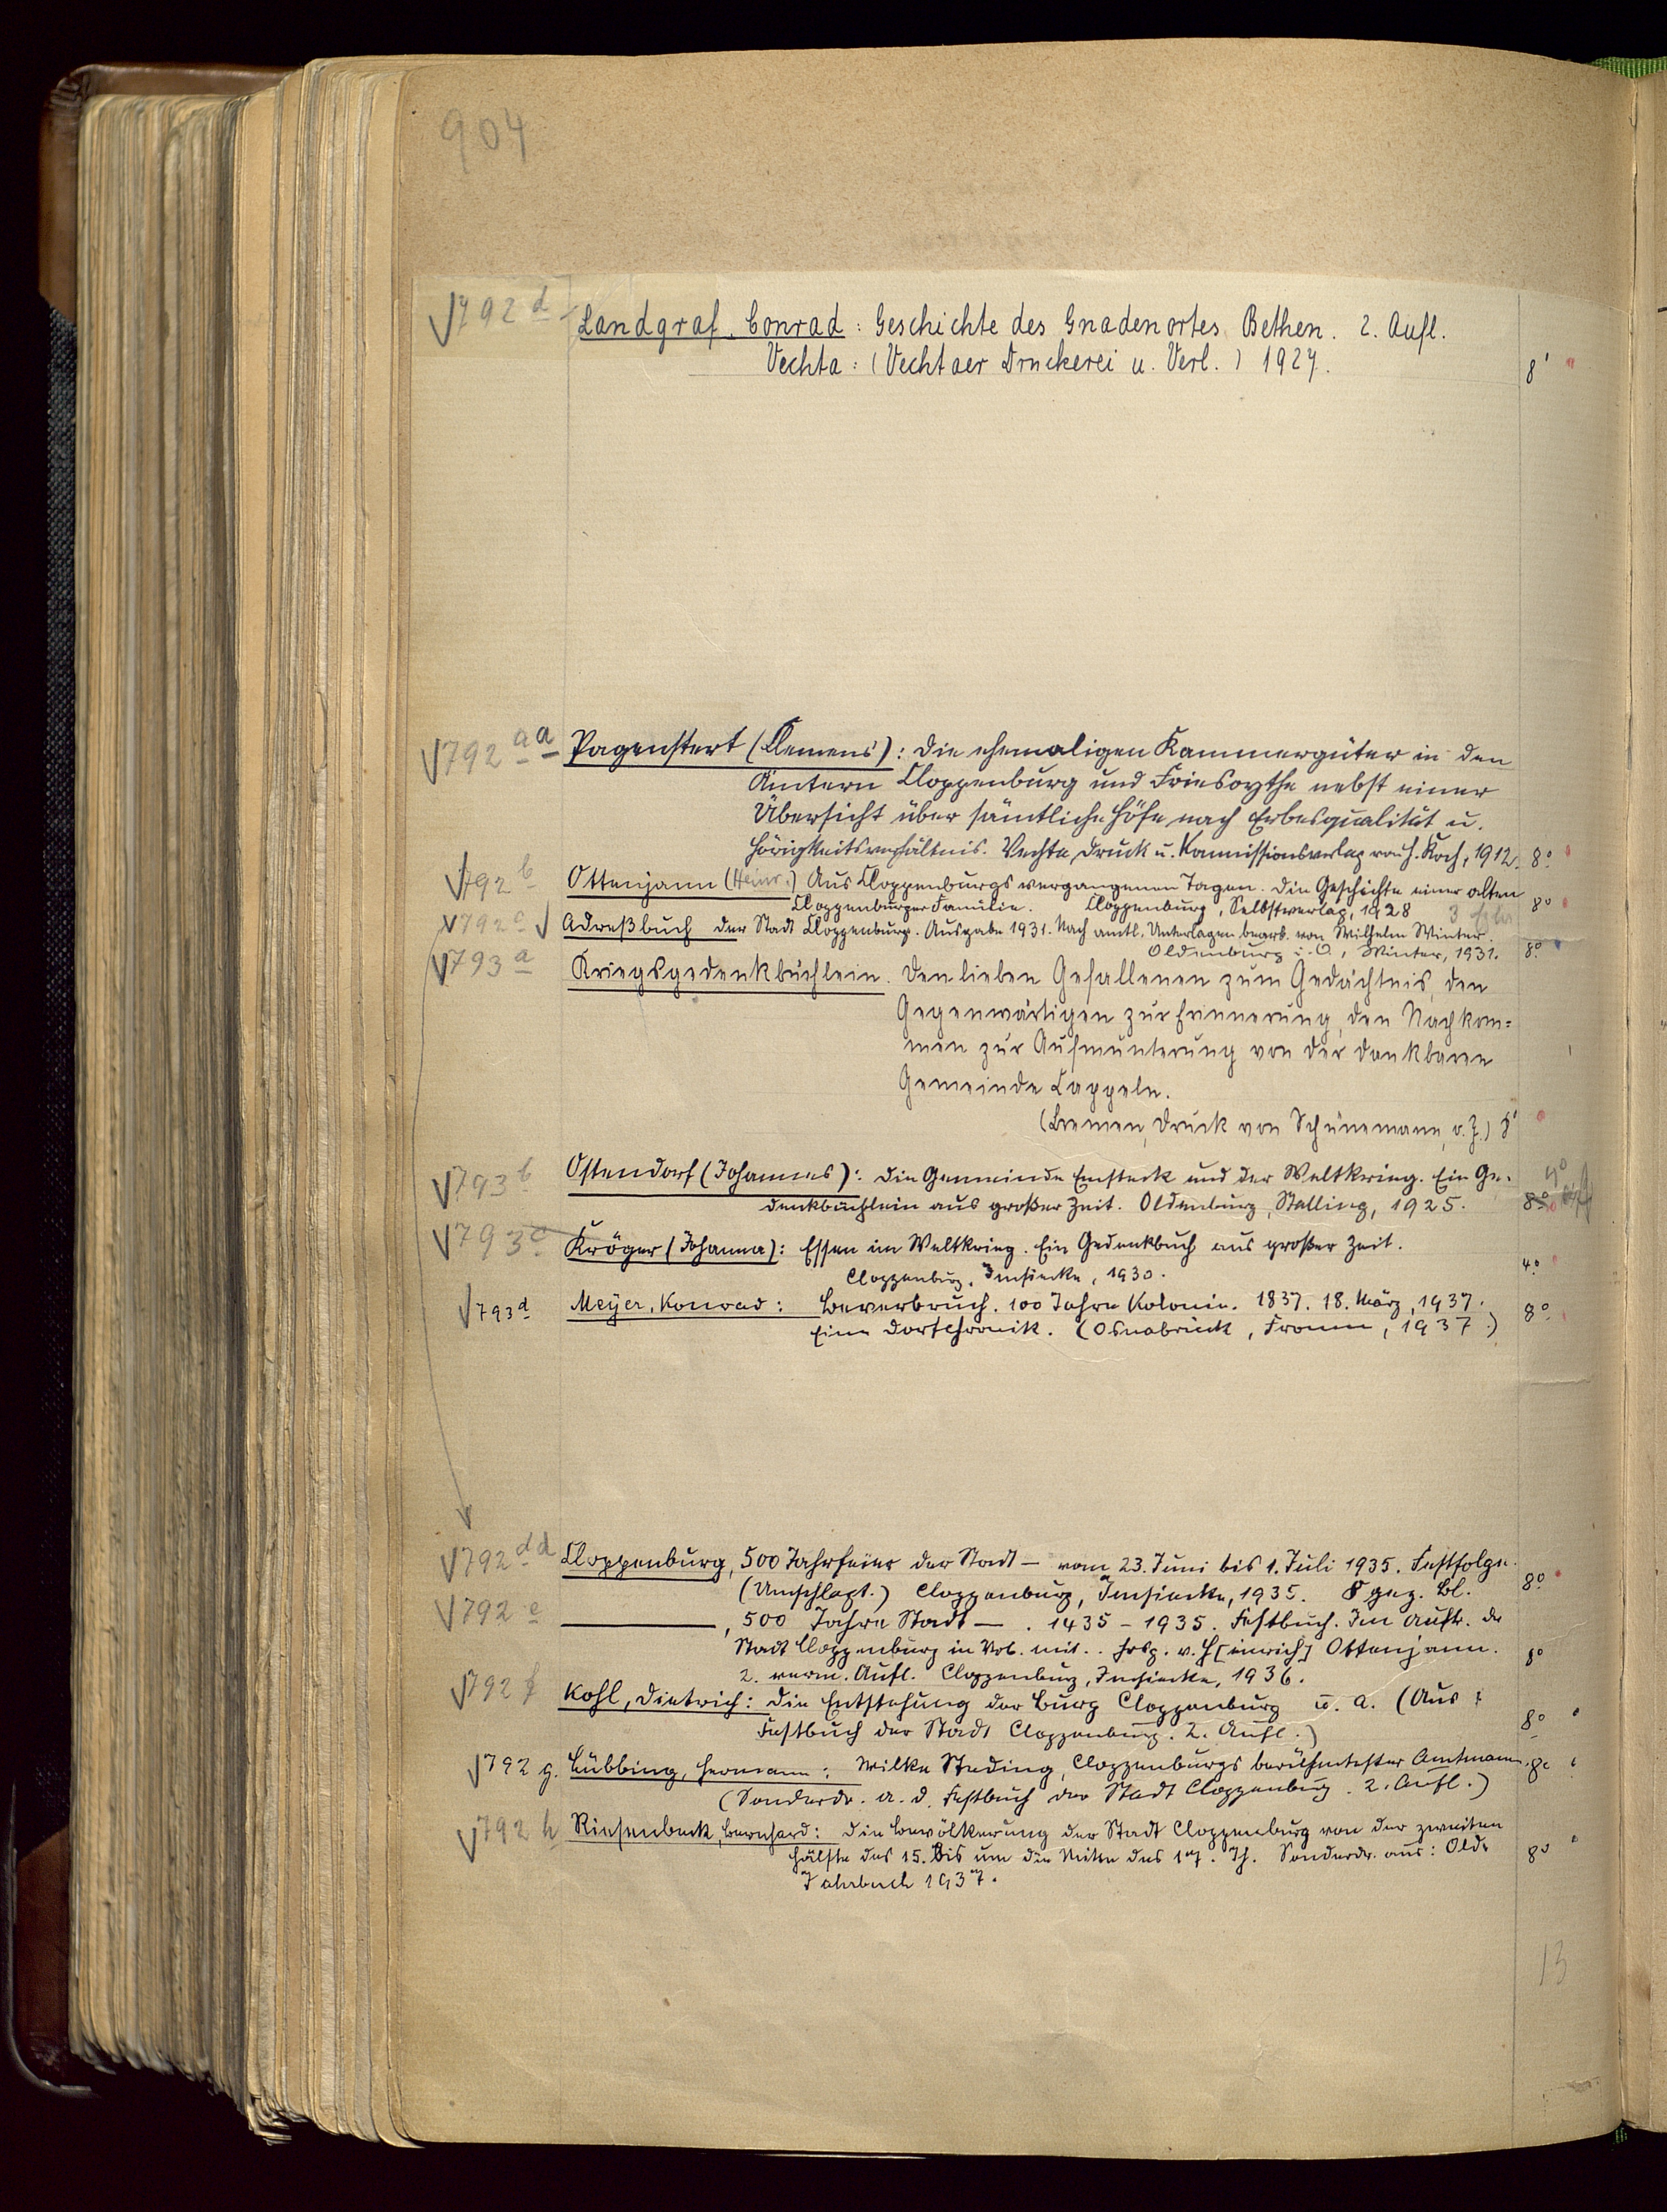 904
√792 d Landgraf, Conrad: Geschichte des Gnadenortes Bethen. 2. Aufl.
Vechta: (Vechtaer Druckerei u. Verl.) 1927. 8°
√792 aa Pagenstert (Clemens): Die ehemaligen Kammergüter in den
Ämtern Cloppenburg und Friesoythe nebst einer
Übersicht über sämtliche Höfe nach Erbesqualität u.
Hörigkeitsverhältnis. Vechta, Druck u. Kommissionsverlag von H. Koch, 1912. 8°
√792 b Ottenjann (Heinr.) Aus Cloppenburgs vergangenen Tagen. Die Geschichte einer alten
Cloppenburger Familie. Cloppenburg, Selbstverlag, 1928 8°
√792 c √ Adreßbuch der Stadt Cloppenburg. Ausgabe 1931. Nach amtl. Unterlagen bearb. von Wilhelm Winter.
Oldenburg i. O., Winter, 1931. 8°
√793 a Kriegsgedenkbüchlein. Den lieben Gefallenen zum Gedächtnis, den
Gegenwärtigen zur Erinnerung, den Nachkom=
men zur Aufmunterung von der dankbaren
Gemeinde Cappeln.
(Bremen, Druck von Schünemann, o. J.) 8°
√793 b Ostendorf (Johannes): Die Gemeinde Emsteck und der Weltkrieg. Ein Ge- 4°
denkbüchlein aus großer Zeit. Oldenburg, Stalling, 1925. 8°
√793 c Kröger (Johanna): Essen im Weltkrieg. Ein Gedenkbuch aus großer Zeit.
Cloppenburg, Imsiecke, 1930. 4°
√793 d Meyer, Konrad: Beverbruch. 100 Jahre Kolonie. 1837. 18. März, 1937.
Eine Dorfchronik. (Osnabrück, Fromm, 1937.) 8°
√792 dd Cloppenburg, 500 Jahrfeier der Stadt — vom 23. Juni bis 1. Juli 1935. Festfolge.
(Umschlagt.) Cloppenburg, Imsiecke, 1935. 8 gez. Bl. 8°
√792 e ———, 500 Jahre Stadt — . 1435 - 1935. Festbuch. Im Auftr. der
Stadt Cloppenburg in Vbb. mit.. hrsg. v. H[einrich] Ottenjann.
2. verm. Aufl. Cloppenburg, Imsiecke, 1936. 8°
√792 f Kohl, Dietrich: Die Entstehung der Burg Cloppenburg u. a. (Aus:
Festbuch der Stadt Cloppenburg. 2. Aufl.) 8°
√792 g. Lübbing, Hermann: Wilke Steding, Cloppenburgs berühmtester Amtmann. 8°
(Sonderdr. a. d. Festbuch der Stadt Cloppenburg. 2. Aufl.)
√792 h Riesenbeck, Bernhard: Die Bevölkerung der Stadt Cloppenburg von der zweiten
Hälfte des 15. bis um die Mitte des 17. Jh. Sonderdr. aus: Old. 8°
Jahrbuch 1937.
13